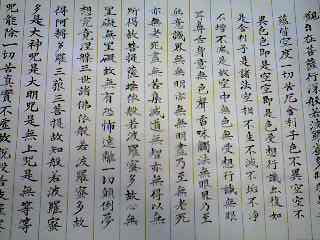 觀自在菩薩行深般若波羅
蘊皆空度一切苦厄舍利子色不異空空不
異色色即是空空即是色受想行識亦復如
是舍利子是諸法空相不生不滅不垢不淨
不增不減是故空中無色無受想行識無眼
耳鼻舌身意無色聲香味觸法無眼界乃至
無意識界無無明亦無無明盡乃至無老死
亦無老死盡無苦集滅道無智亦無得以無
所得故菩提薩埵依般若波羅蜜多故心無
罣礙無罣礙故無有恐怖遠離一切顛倒夢
想究竟涅槃三世諸佛依般若波羅蜜多故
得阿耨多羅三藐三菩提故知般若波羅蜜
多是大神咒是大明咒是無上咒是無等等
咒能除一切苦真實不虛故說般若波羅